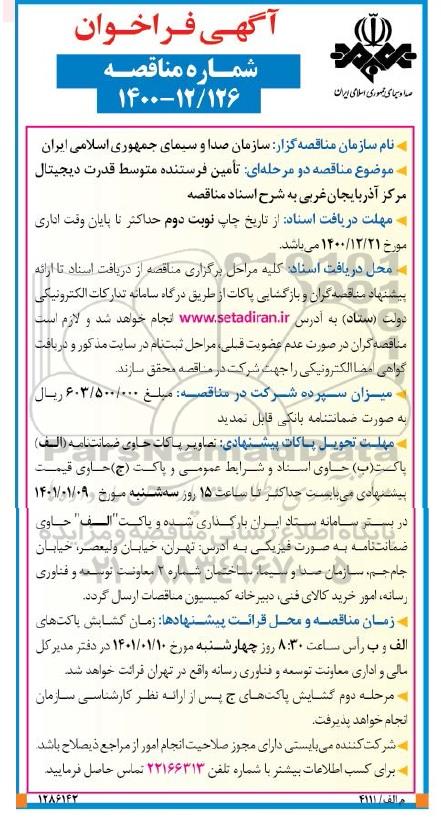 آگهی فراخوان
شماره مناقصه
۱۴۰۰-۱۲/۱۲۶
صدا و سیمای جمهوری اسلامی ایران
نام سازمان مناقصه‌گزار: سازمان صدا و سیمای جمهوری اسلامی ایران
موضوع مناقصه دو مرحله‌ای: تأمین فرستنده متوسط قدرت دیجیتال
مرکز آذربایجان‌غربی به شرح اسناد مناقصه
مهلت دریافت اسناد: از تاریخ چاپ نوبت دوم حداکثر تا پایان وقت اداری
مورخ ۱۴۰۰/۱۲/۲۱ می‌باشد.
محل دریافت اسناد: کلیه مراحل برگزاری مناقصه از دریافت اسناد تا ارائه
پیشنهاد مناقصه‌گران و بازگشایی پاکات از طریق درگاه سامانه تدارکات الکترونیکی
دولت (ستاد) به آدرس www.setadiran.ir انجام خواهد شد و لازم است
مناقصه‌گران در صورت عدم عضویت قبلی، مراحل ثبت‌نام در سایت مذکور و دریافت
گواهی امضا الکترونیکی را جهت شرکت در مناقصه محقق سازند.
میزان سپرده شرکت در مناقصه: مبلغ ۶۰۳/۵۰۰/۰۰۰ ریال
به صورت ضمانتنامه بانکی قابل تمدید
مهلت تحویل پاکات پیشنهادی: تصاویر پاکات حاوی ضمانت‌نامه (الف)
پاکت(ب) حاوی اسناد و شرایط عمومی و پاکت (ج) حاوی قیمت
پیشنهادی می‌بایست حداکثر تا ساعت ۱۵ روز سه‌شنبه مورخ ۱۴۰۱/۰۱/۰۹
در بستر سامانه ستاد ایران بارگذاری شده و پاکت"الف" حاوی
ضمانت‌نامه به صورت فیزیکی به آدرس: تهران، خیابان ولیعصر، خیابان
جام‌جم، سازمان صدا و سیما، ساختمان شماره ۲ معاونت توسعه و فناوری
رسانه، امور خرید کالای فنی، دبیرخانه کمیسیون مناقصات ارسال گردد.
زمان مناقصه و محل قرائت پیشنهادها: زمان گشایش پاکت‌های
الف و ب رأس ساعت ۸:۳۰ روز چهارشنبه مورخ ۱۴۰۱/۰۱/۱۰ در دفتر مدیر کل
مالی و اداری معاونت توسعه و فناوری رسانه واقع در تهران قرائت خواهد شد.
مرحله دوم گشایش پاکت‌های ج پس از ارائه نظر کارشناسی سازمان
انجام خواهد پذیرفت.
شرکت‌کننده می‌بایستی دارای مجوز صلاحیت انجام امور از مراجع ذیصلاح باشد.
برای کسب اطلاعات بیشتر با شماره تلفن ۲۲۱۶۶۳۱۳ تماس حاصل فرمایید.
م الف/ ۴۱۱۱
۱۲۸۶۱۴۲